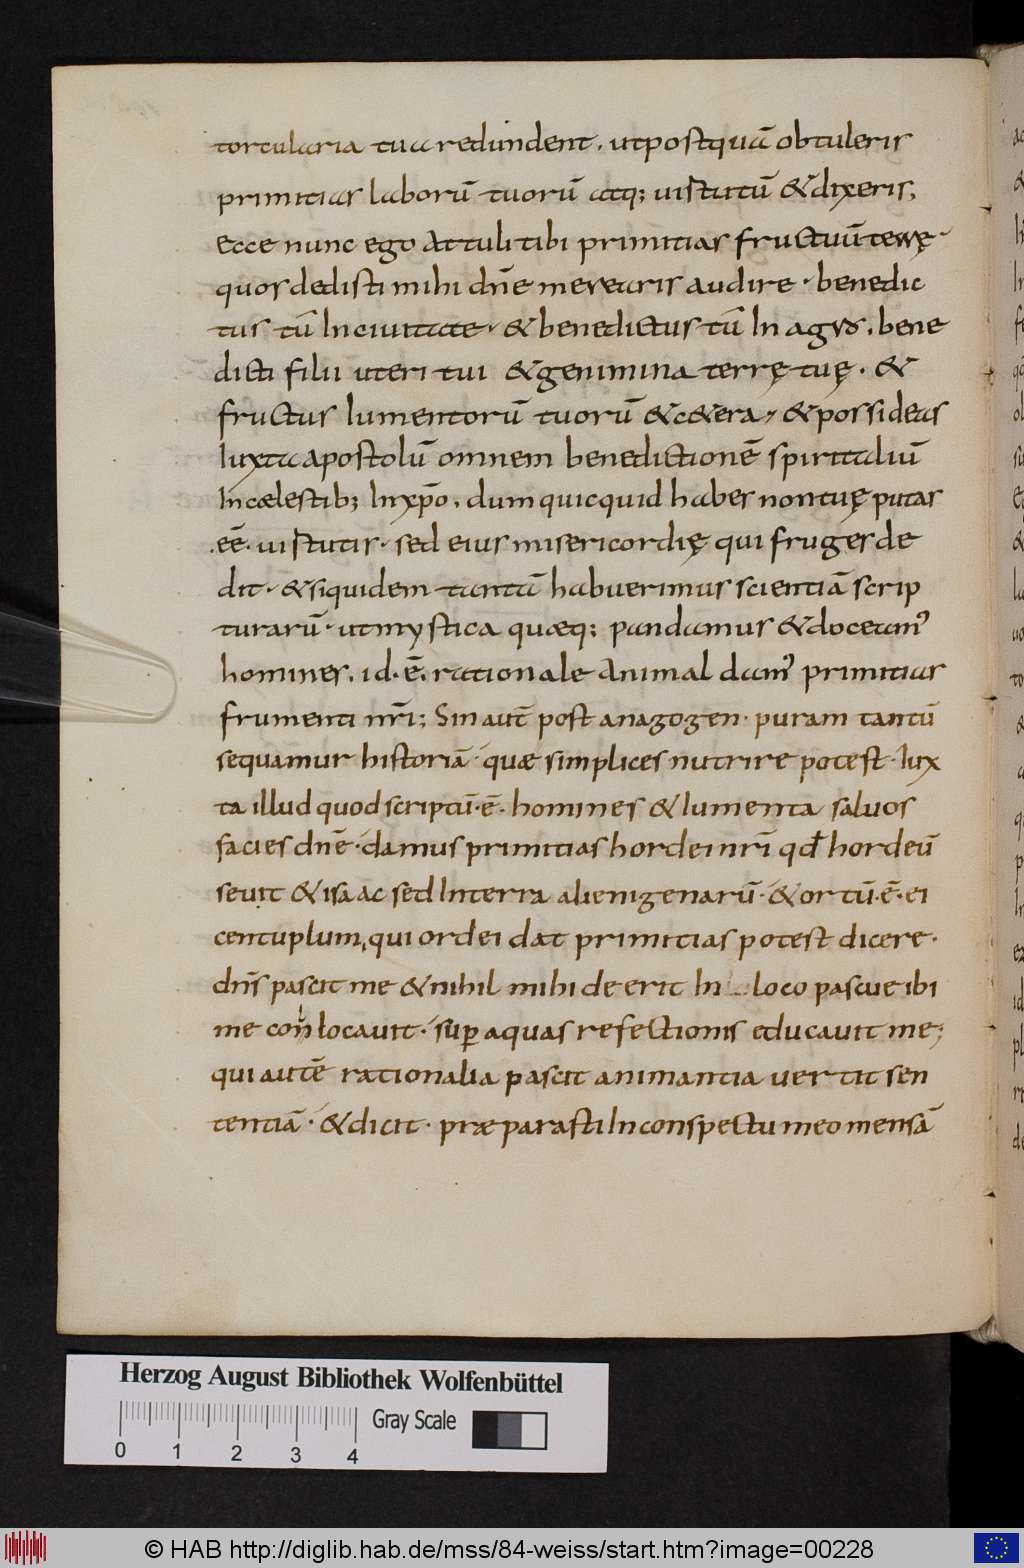 torcularia tua redundent. ut postquā obtuleris
primitias laborū tuorū atq; uisitatū & dixeris;
ecce nunc ego attuli tibi primitias fructuū terrę
quos dedisti mihi dn̄e merearis audire · benedic
tus tū In ciuitate · & benedictus tū In agro. bene
dicti filii uteri tui & genimina terrę tuę. &
fructus Iumentorū tuorū & c&era, & possideas
Iuxta apostolū omnem benedictionē spiritaliū
In cælestib; In xp̄o. dum quicquid habes non tuę putas
eē. iustitiis · sed eius misericordię qui fruges de
dit · & siquidem tantā habuerimus scientiā scrip
turarū · ut mystica quæq; pandamus & doceam'
homines. id · ē. rationale animal dam' primitias
frumenti nr̄i; Sin aut̄ post anagogen · puram tantū
sequamur historiā · quæ simplices nutrire potest · Iux
ta illud quod scriptū · ē · homines & Iumenta saluos
facies dn̄e · damus primitias hordei nr̄i qd̄ hordeū
seuit & isaac sed In terra alienigenarū · & ortū · ē · ei
centuplum, qui ordei dat primitias potest dicere ·
dn̄s pascit me & nihil mihi deerit In loco pascue ibi
me conlocauit · sup aquas refectionis educauit me;
qui autē rationalia pascit animantia uertit sen
tentiā · & dicit · præparasti In conspectu meo mensā
Herzog August Bibliothek Wolfenbüttel
Gray Scale
0 1 2 3 4
© HAB http://diglib.hab.de/mss/84-weiss/start.htm?image=00228